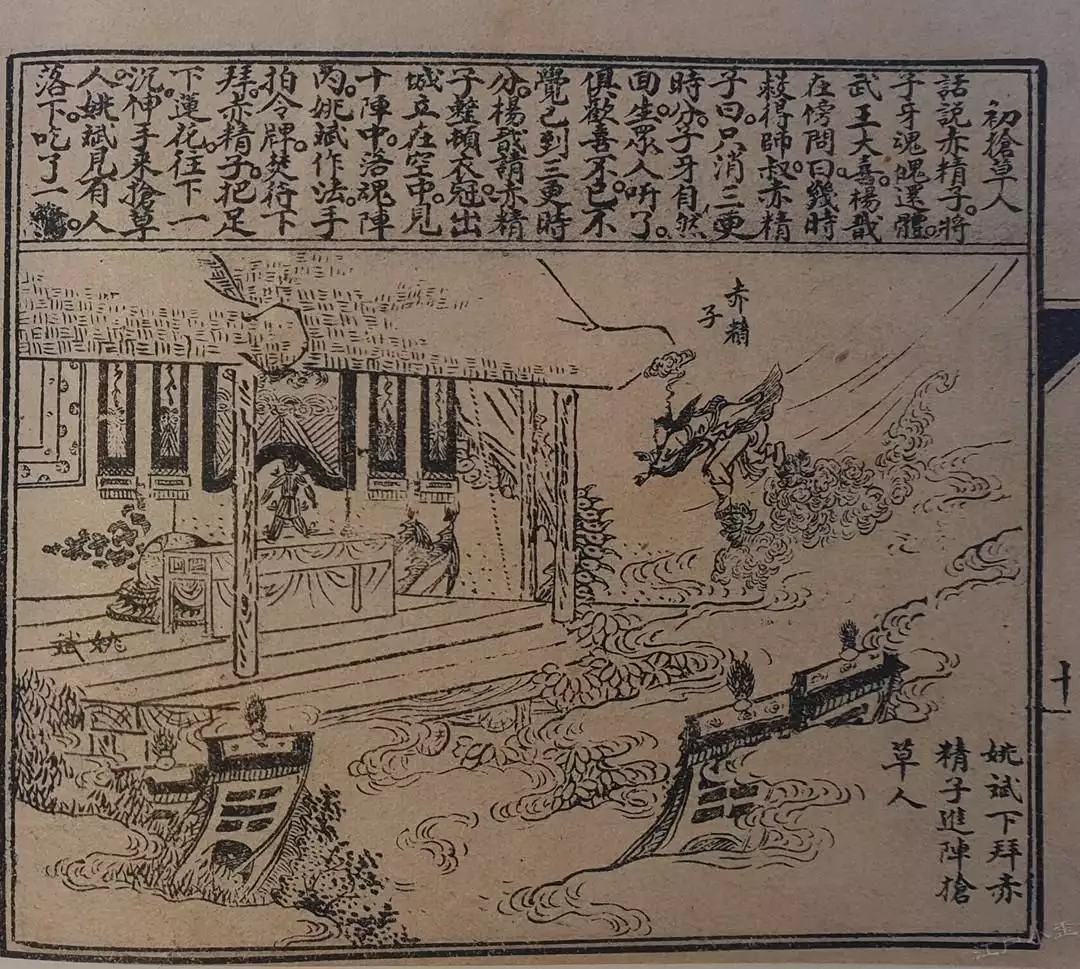 初搶草人
話說赤精子。將
子牙魂魄還體。
武王大喜楊戩
在傍問曰幾時
救得師叔赤精
子曰。只消三更
時分。子牙自然
囬生。眾人听了。
俱歡喜不已不
覺已到三更時
分。楊戩請赤精
子整頓衣冠出
城立在空中。見
十陣中。落魂陣
内。姚斌作法手
拍令牌。焚符下
拜。赤精子。把足
下蓮花往下一
沉伸手來搶草
人。姚斌見有人
落下。吃了一
赤精
子
姚斌
姚斌下拜赤
精子進陣搶
草人
十